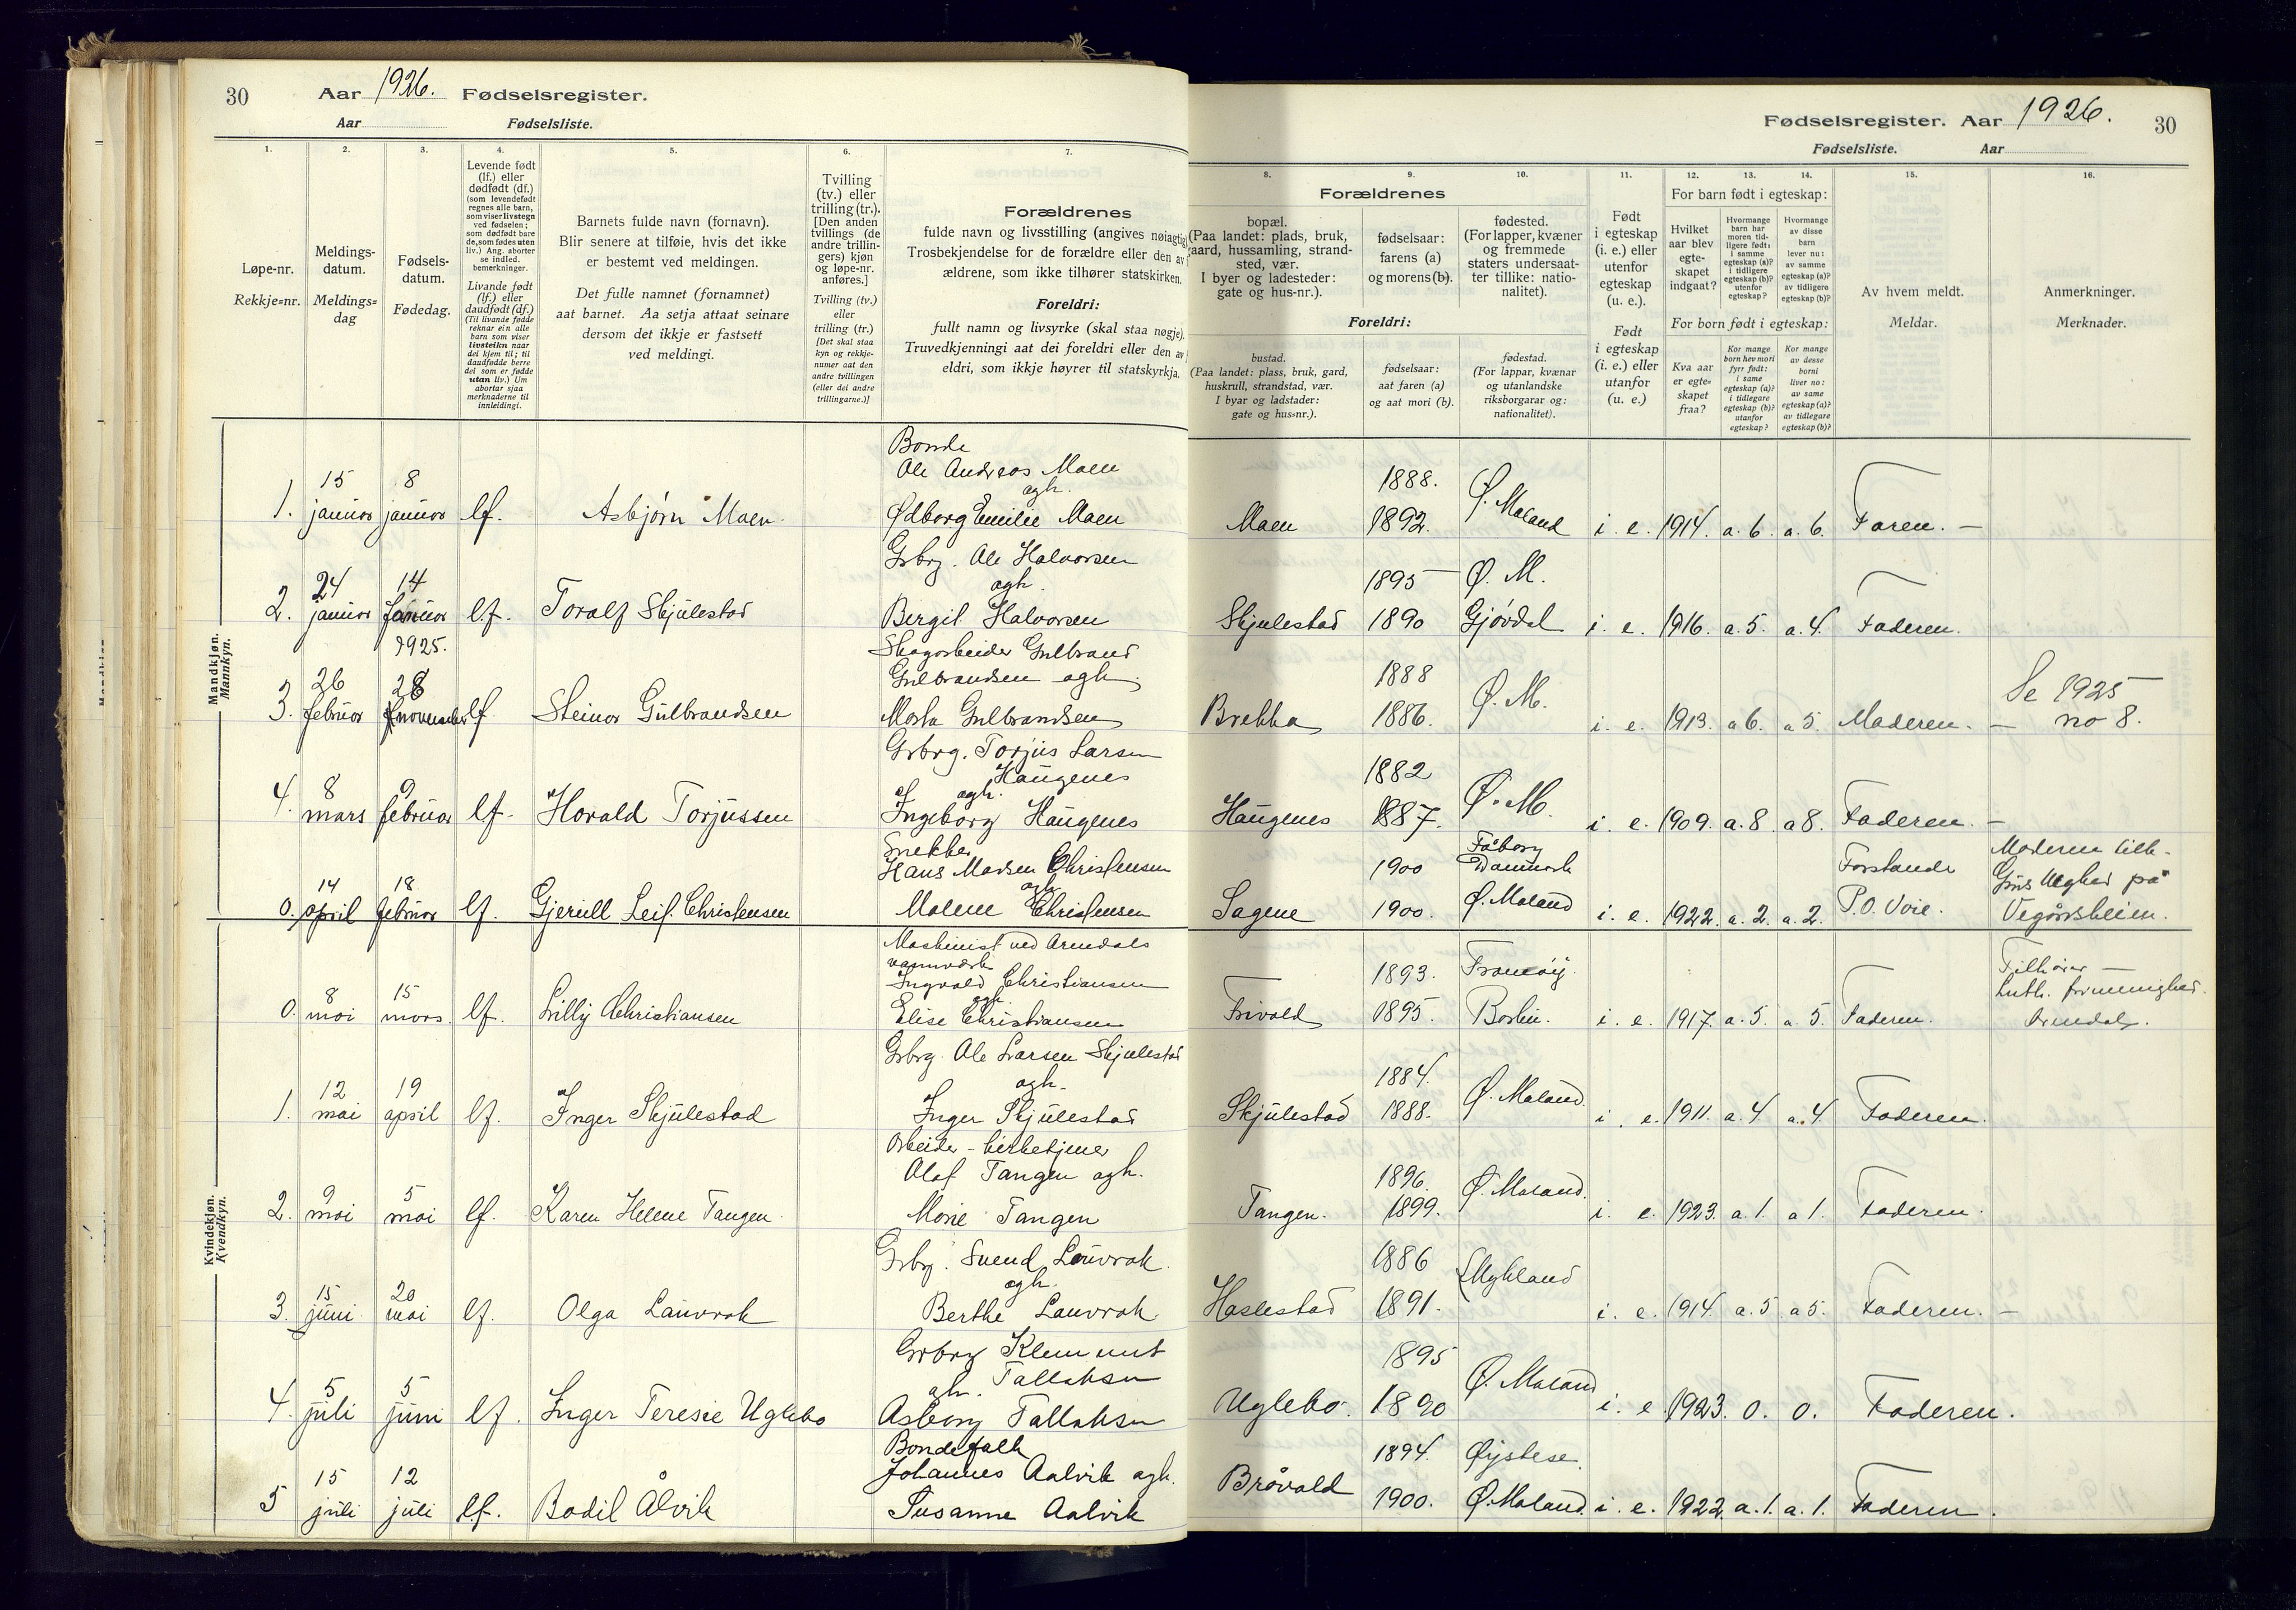 30
Aar 1926. Fødselsregister.
Aar Fødselsliste.
1.
2.
3.
4.
5.
6.
7.
Løpe-nr.
Rekkje-nr.
Meldings-
datum.
Meldings-
dag
Fødsels-
datum.
Fødedag.
Levende født
(lf.) eller
dødfødt (df.)
(som levendefødt
regnes alle barn,
som viser livstegn
ved fødselen;
som dødfødt bare
de, som fødes uten
liv.) Ang. aborter
se indled.
bemerkninger.
Livande født
(lf.) eller
daudfødt (df.)
(Til livande fødde
reknar ein alle
barn som viser
livsteikn naar
dei kjem til; til
daudfødde berre
dei som er fødde
utan liv.) Um
abortar sjaa
merknaderne til
innleidingi.
Barnets fulde navn (fornavn).
Blir senere at tilføie, hvis det ikke
er bestemt ved meldingen.
Det fulle namnet (fornamnet)
aat barnet. Aa setja attaat seinare
dersom det ikkje er fastsett
ved meldingi.
Tvilling
(tv.) eller
trilling (tr.).
[Den anden
tvillings (de
andre trillin-
gers) kjøn
og løpe-nr.
anføres.]
Tvilling (tv.)
eller
trilling (tr.)
[Det skal staa
kyn og rekkje-
numer aat den
andre tvillingen
(eller dei andre
trillingarne.)]
Forældrenes
fulde navn og livsstilling (angives nøiagtig
Trosbekjendelse for de forældre eller den av
ældrene, som ikke tilhører statskirken.
Foreldri:
fullt namn og livsyrke (skal staa nøgje).
Truvedkjenningi aat dei foreldri eller den av
eldri, som ikkje høyrer til statskyrkja.
Mandkjøn.
Mannkyn.
1. 15 januar 8 januar lf. Asbjørn Moen
Bonde
Ole Andreas Moen
ogh.
Ødborg Emilie Moen
2. 24 januar 14 januar lf. Toralf Skjulestad
Grbrg. Ole Halvorsen
ogh.
Bergit Halvorsen
3. 26 februar 1925. 28 november lf Steinar Gulbrandsen
Skogarbeider Gulbrand
Gulbrandsen ogh.
Marta Gulbrandsen
4. 8 mars 9 februar lf. Harald Torjussen
Grbrg. Torjus Larsen
Haugenes
ogh.
Ingeborg Haugenes
0. 14 april 18 februar lf. Gjerull Leif Christensen
Snekker
Hans Madsen Christensen
ogh.
Malene Christensen
Kvindekjøn.
Kvendkyn.
0. 8 mai 15 mars. lf. Lilly Christiansen
Maskinist ved Arendals
vannverk
Ingvald Christiansen
ogh.
Elise Christiansen
1. 12 mai 19 april lf. Inger Skjulestad
Grbrg. Ole Larsen Skjulestad
ogh.
Inger Skjulestad
2. 9 mai 5 mai lf. Karen Helene Tangen
Arbeider - kirketjener
Olaf Tangen ogh.
Marie Tangen
3. 15 juni 20 mai lf. Olga Lauvrak
Grbrg. Svend Lauvrak
ogh.
Berthe Lauvrak
4. 5 juli 5 juni lf. Inger Teresie Uglebo
Grbrg Klemmet
ogh. Tallaksen
Asborg Tallaksen
5 15 juli 12 juli lf. Bodil Ålvik
Bondefolk
Johannes Aalvik ogh.
Susanne Aalvik
Fødselsregister. Aar 1926.
30
Fødselsliste. Aar
8.
9.
10.
11.
12.
13.
14.
15.
16.
Forældrenes
bopæl.
(Paa landet: plads, bruk,
gaard, hussamling, strand-
sted, vær.
I byer og ladesteder:
gate og hus-nr.).
fødselsaar:
farens (a)
og morens (b).
fødested.
(For lapper, kvæner
og fremmede
staters undersaat-
ter tillike: natio-
nalitet).
Foreldri:
bustad.
(Paa landet: plass, bruk, gard,
huskrull, strandstad, vær.
I byar og ladstader:
gate og hus-nr.).
fødselsaar:
aat faren (a)
og aat mori (b).
fødestad.
(For lappar, kvænar
og utanlandske
riksborgarar og:
nationalitet).
Født
i egteskap
(i. e.) eller
utenfor
egteskap
(u. e.).
Født
i egteskap
(i. e.) eller
utanfor
(u. e.)
For barn født i egteskap:
Hvilket
aar blev
egte-
skapet
indgaat?
Hvormange
barn har
moren tid-
ligere født:
i samme
egteskap (a)?
i tidligere
egteskap (b)?
utenfor
egteskap?
Hvormange
av disse
barn
lever nu:
av samme
egteskap (a)?
av tidligere
egteskap (b)?
For born født i egteskap:
Kva aar
er egte-
skapet
fraa?
Kor mange
born hev mori
fyrr født:
i same
egteskap (a)?
i tidlegare
egteskap (b)?
utanfor
egteskap?
Kor mange
av desse
borni
liver no:
av same
egteskap (a)?
av tidlegare
egteskap (b)?
Av hvem meldt.
Meldar.
Anmerkninger.
Merknader.
Moen 1888. 1892. Ø. Moland i. e. 1914. a. 6. a. 6. Faren. —
Skjulestad 1895 Ø. M. 1890 Gjøvdal i. e. 1916. a. 5. a. 4. Faderen.
Brekka 1888 1886. Ø. M. i. e. 1913. a 6. a 5. Moderen. — Se 1925 no 8.
Haugenes 1882 1887. Ø. M. i. e. 1909. a. 8. a 8. Faderen. —
Sagene 1900 Fåborg Danmark 1900. Ø. Moland i. e. 1922. a. 2. a. 2. Forstander P. O. Voie.
Moderen tilh.
på
Vegårsheien.
Frivold 1893. Tromøy. 1895. i. e. 1917. a. 5. a 5. Faderen.
Tilhører
luth. frimenighed.
Arendal.
Skjulestad 1884. 1888. Ø. Moland. i. e. 1911. a. 4 a. 4 Faderen.
Tangen. 1896. 1899. Ø. Moland. i. e. 1923. a. 1. a 1. Faderen.
Haslestad 1886 1891. Mykland i. e. 1914. a. 5 a 5. Faderen. —
Uglebo. 1895 1890 Ø. Moland i. e 1923. 0. 0. Faderen.
Bråvold 1894. Øystese. 1900. Ø. Moland. i. e. 1922. a. 1. a. 1. Faderen.